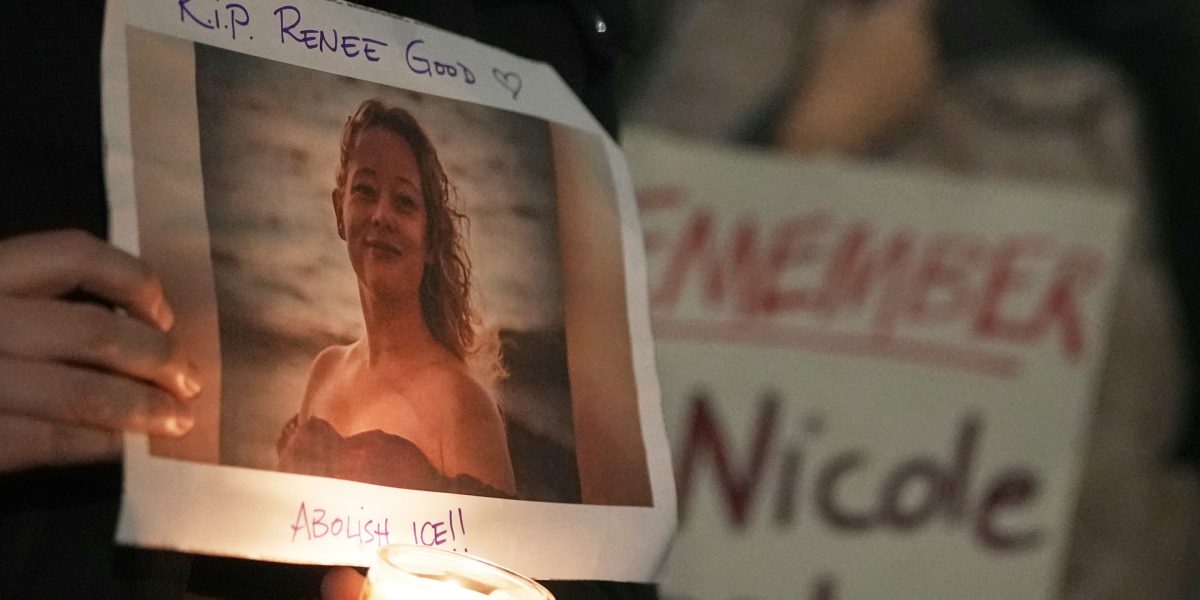 R.I.P. RENEE GOOD ♡
ABOLISH ICE!!
REMEMBER
Nicole